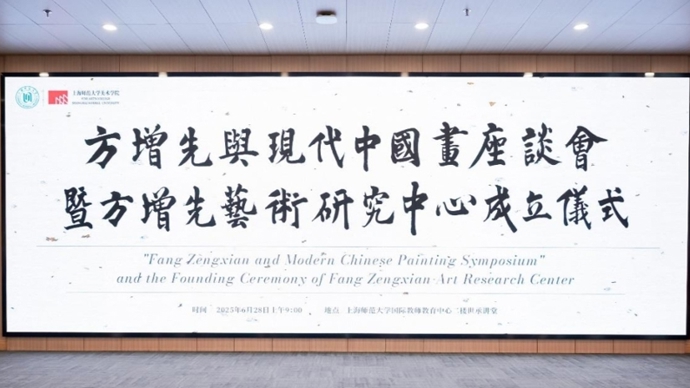 上海师范大学美术学院
方增先與現代中國畫座談會
暨方增先藝術研究中心成立儀式
"Fang Zengxian and Modern Chinese Painting Symposium"
and the Founding Ceremony of Fang Zengxian Art Research Center
时间 2025年6月28日上午9:00 地点 上海师范大学国际教师教育中心二楼世承讲堂